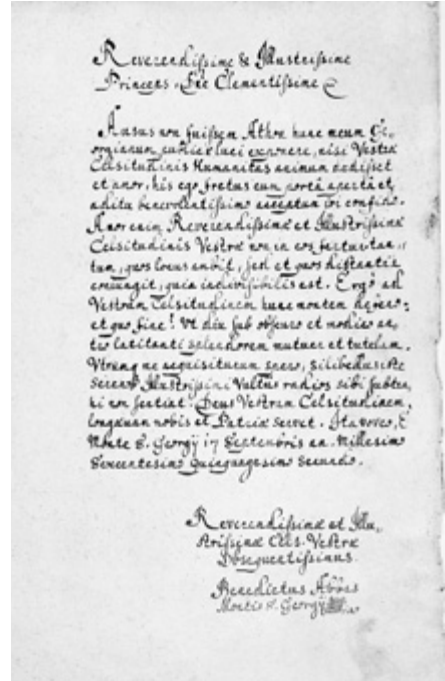 Reverendissime & Illustrissime
Princeps, Dne Clementissime
Ausus non fuissem Athon hunc meum Ge-
orgianum publicæ luci exponere, nisi Vestræ
Celsitudinis Humanitas animum dedisset
et amor, his ego fretus eum portâ apertâ et
aditu benevolentissimo acceptum iri confido.
Amor enim Reverendissimæ et Illustrissimæ
Celsitudinis Vestræ non in eos fertur tan-
tum, quos locus ambit, sed et quos distantia
coniungit, quia indivisibilis est. Ergò ad
Vestram Celsitudinem hunc montem defero:
et quo fine? Ut diu sub obscuro et modico an-
tro latitanti splendorem mutuer et tutelam.
Utrumq me acquisiturum spero, si libellus iste
Serenos Illustrissimi Vultus radios sibi subtra-
hi non sentiat. Deus Vestram Celsitudinem
longævam nobis et Patriæ servet. Ita voveo, È
Monte S. Georgÿ 17 Septembris an. Millesimo
Sexcentesimo Quinquagesimo Secundo.
Reverendissimæ et Illu-
strissimæ Cels. Vestræ
Obsequentissimus.
Benedictus Abbas
Montis S. Georgÿ